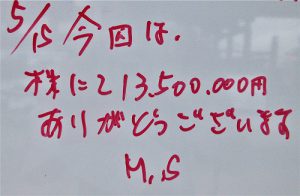 5/15 今回は.
株に213.500.000円
ありがとうございます
M.S